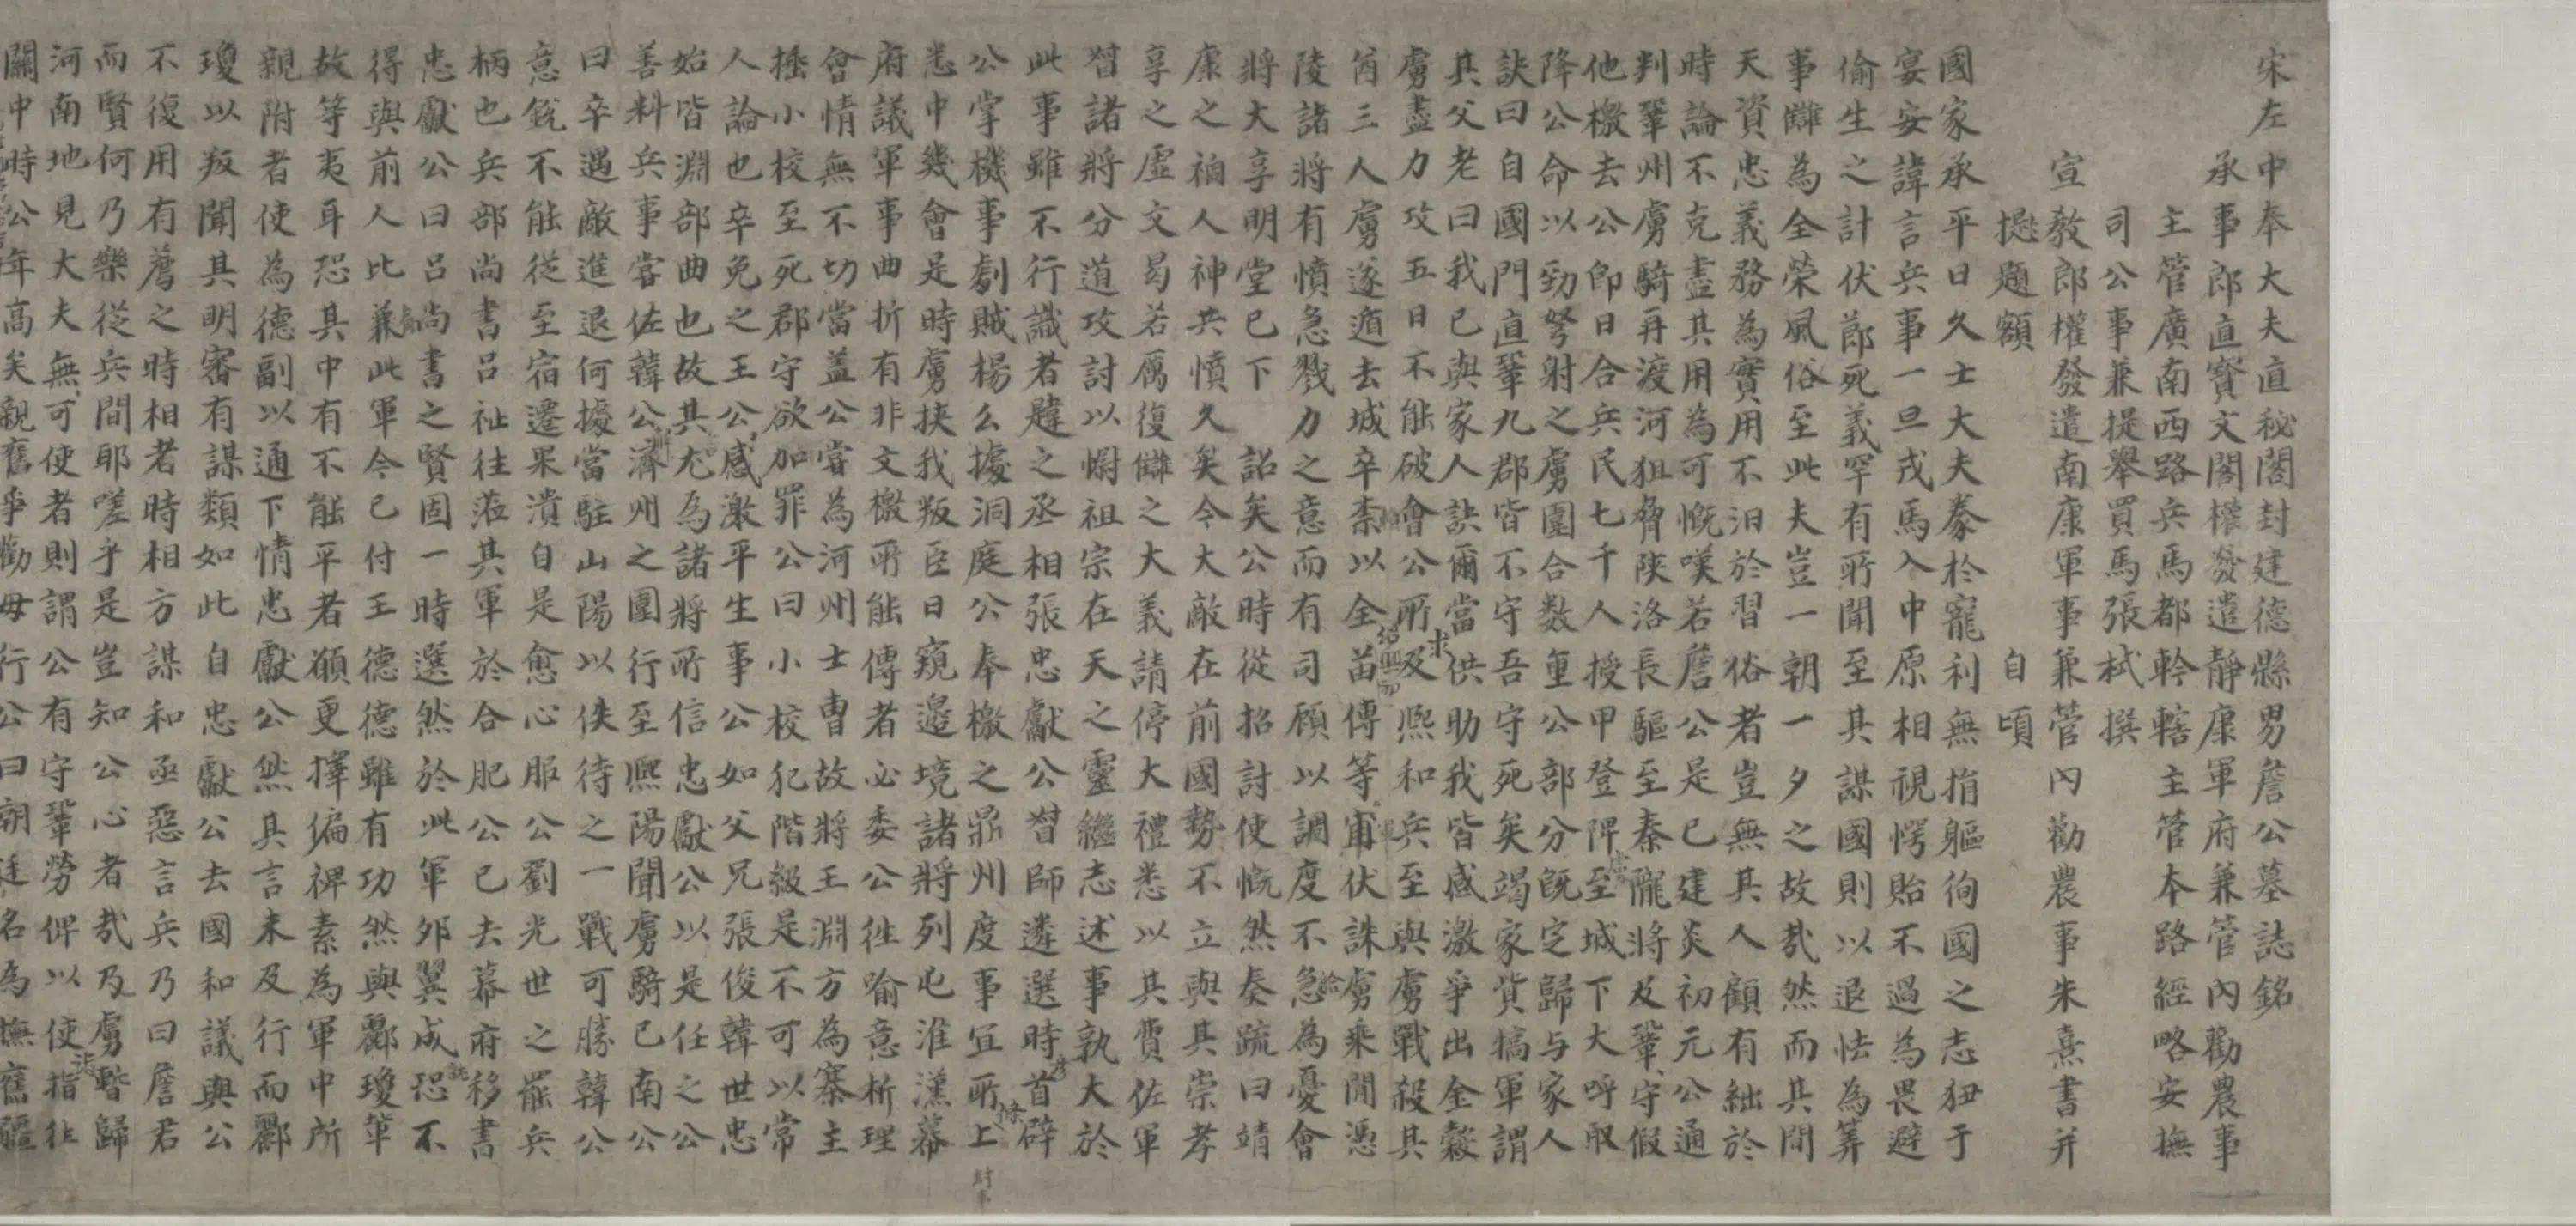 宋左中奉大夫直秘閣封建德縣男詹公墓誌銘
承事郎直寶文閣權發遣靜康軍府兼管內勸農事
主管廣南西路兵馬都鈐轄主管本路經略安撫
司公事兼提舉買馬張栻撰
宣教郎權發遣南康軍事兼管內勸農事朱熹書并
題額 自頃
國家承平日久士大夫豢於寵利無指軀侚國之志狃于
宴安諱言兵事一旦戎馬入中原相視愕貽不過為畏避
偷生之計伏節死義罕有所聞至其謀國則以退怯為筭
事讎為全榮風俗至此夫豈一朝一夕之故哉然而其間
天資忠義務為實用不汩於習俗者豈無其人顧有絀於
時論不克盡其用為可慨嘆若詹公是已建炎初元公通
判鞏州虜騎再渡河狙脅陝洛長驅至秦隴將及鞏守假
他檄去公即日合兵民七千人授甲登陴至城下大呼取
降公命以勁弩射之虜圍合数重公部分既定歸与家人
訣曰自國門直鞏九郡皆不守吾守死矣竭家貲犒軍謂
其父老曰我已與家人訣爾當供助我皆感激爭出金穀
虜盡力攻五日不能破會公所求及熙和兵至與虜戰殺其
酋三人虜遂遁去城卒柰以全苗傅等窜伏誅虜乘閒憑
陵諸將有憤急戮力之意而有司顧以調度不急為憂會
將大享明堂已下 詔矣公時從招討使慨然奏疏曰靖
康之禍人神共憤久矣今大敵在前國勢不立與其崇孝
享之虛文曷若厲復讎之大義請停大禮悉以其費佐軍
督諸將分道攻討以慰祖宗在天之靈繼志述事孰大於
此事雖不行識者韙之丞相張忠獻公督師遴選時首辟
公掌機事劇賊楊么據洞庭公奉檄之鼎州度事宜所上
悉中幾會是時虜挾我叛臣日窺邊境諸將列屯淮漢幕
府議軍事曲折有非文檄所能傳者必委公徃喻意析理
會情無不切當盖公嘗為河州士曹故將王淵方為寨主
捶小校至死郡守欲加罪公曰小校犯階級是不可以常
人論也卒免之王公感激平生事公如父兄張俊韓世忠
始皆淵部曲也故其尤為諸將所信忠獻公以是任之公
善料兵事嘗佐韓公濟州之圍行至熙陽聞虜騎已南公
曰卒遇敵進退何據當駐山陽以佚待之一戰可勝韓公
意銳不能從至宿遷果潰自是愈心服公劉光世之罷兵
柄也兵部尚書呂祉往蒞其軍於合肥公已去幕府移書
忠獻公曰呂尚書之賢固一時選然於此軍邜翼成恐不
得與前人比兼此軍今已付王德德雖有功然與酈瓊軰
故等夷耳恐其中有不能平者願更擇偏裨素為軍中所
親附者使為德副以通下情忠獻公然其言未及行而酈
瓊以叛聞其明審有謀類如此自忠獻公去國和議與公
不復用有薦之時相者時相方謀和亟惡言兵乃曰詹君
而賢何乃樂從兵間耶嗟乎是豈知公心者哉及虜暫歸
河南地見大夫無可使者則謂公有守鞏勞俾以使指往
關中時公年高矣親舊爭勸毋行公曰朝廷名為撫舊疆